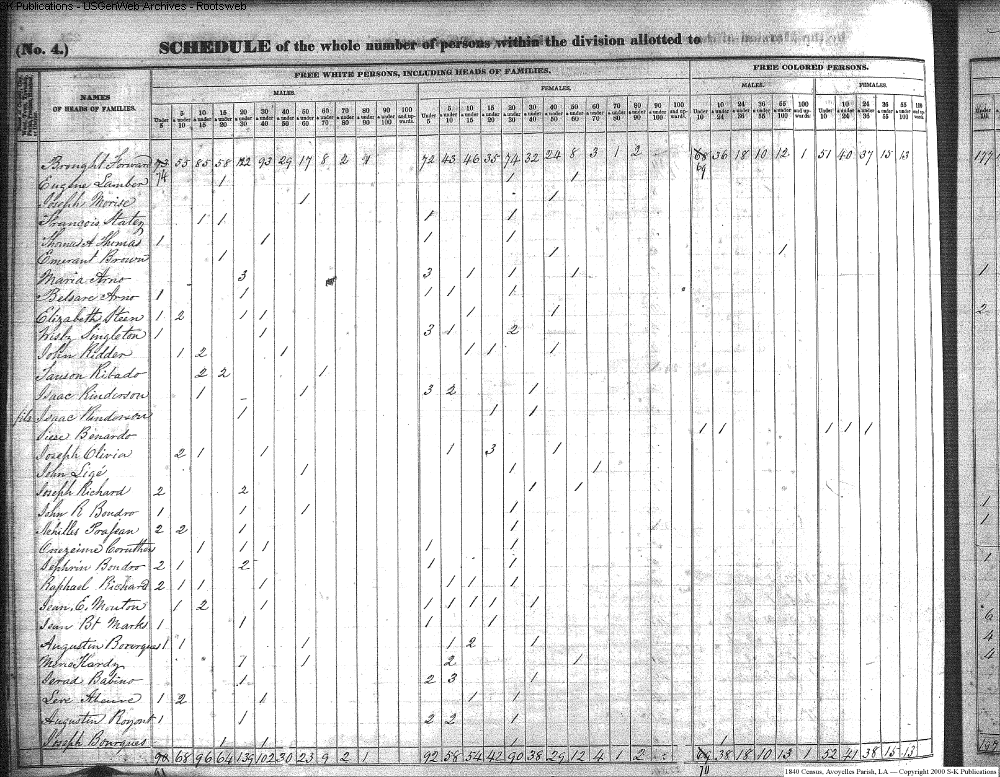 S-K Publications - USGenWeb Archives - Rootsweb
(No. 4.)
SCHEDULE of the whole number of persons within the division allotted to
NAMES OF HEADS OF FAMILIES.
FREE WHITE PERSONS, INCLUDING HEADS OF FAMILIES.
FREE COLORED PERSONS.
MALES. FEMALES. MALES. FEMALES.
Under 5 5 & under 10 10 & under 15 15 & under 20 20 & under 30 30 & under 40 40 & under 50 50 & under 60 60 & under 70 70 & under 80 80 & under 90 90 & under 100 100 and upwards. Under 5 5 & under 10 10 & under 15 15 & under 20 20 & under 30 30 & under 40 40 & under 50 50 & under 60 60 & under 70 70 & under 80 80 & under 90 90 & under 100 100 and upwards. Under 10 10 & under 24 24 & under 36 36 & under 55 55 & under 100 100 and upwards Under 10 10 & under 24 24 & under 36 36 & under 55 55 & under 100
Brought Forward 55 85 58 93 29 17 8 2 1 72 43 46 35 74 32 24 8 3 1 2 68 36 18 10 12 1 51 40 37 15 13 177
74 69
Eugene Lambor 1 1 1
Joseph Morise 1 1
François Staten 1 1 1 1
Thomas A Thomas 1 1 1 1
Emerant Brown 1 1 1
Maria Arno 3 3 1 1 1 1
Belsare Arno 1 1 1 1 1
Elizabeth Steen 1 2 1 1 1 1 2
Singleton 1 1 3 1 2
John Kidder 1 2 1 1 1 1
Ribado 2 2 1
Isaac Rinderson 1 1 3 2 1
fils Isaac Rinderson 1 1 1
Benardo 1 1 1 1 1
Joseph Olivia 2 1 1 1 3 1
John Ligé 1 1 1
Joseph Richard 2 2 1 1
John R Boudro 1 1 1 1
Achilles 2 2 1 1
Coruthers 1 1 1 1 1
Sephrin Boudro 2 1 2 1 1
Raphael Richard 2 1 1 1 1 1 1
Jean E. Mouton 1 2 1 1 1 1 1 1
Jean Bt Marks 1 1 1 1
Augustin Bourques 1 1 1 1 2 1
Hardy 1 1 2 1
Babino 1 2 3 1
1 2 1 1 1
Augustin 1 1 2 2 1
Joseph Bourques 1 1 1 1
90 68 96 64 139 102 30 23 9 2 1 92 58 54 42 90 38 29 12 4 1 2 69 38 18 10 13 1 52 41 38 15 13
70
1840 Census, Avoyelles Parish, LA — Copyright 2000 S-K Publications